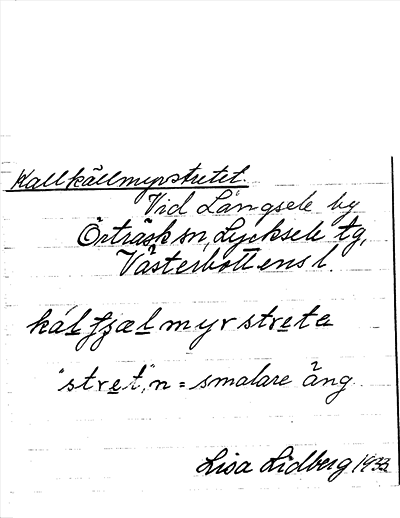 Kallkällmyrstretet.
Vid Långsele by
Örträsk sn, Lycksele tg,
Västerbottens l.
kálfjælmyrstreta
"stret", n = smalare äng
Lisa Lidberg 1933